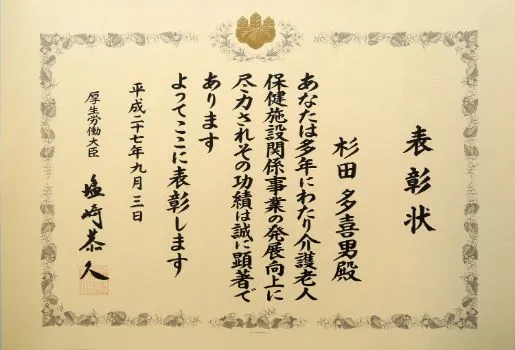 表彰状
杉田多喜男殿
あなたは多年にわたり介護老人
保健施設関係事業の発展向上に
尽力されその功績は誠に顕著で
あります
よってここに表彰します
平成二十七年九月三日
厚生労働大臣 塩崎恭久